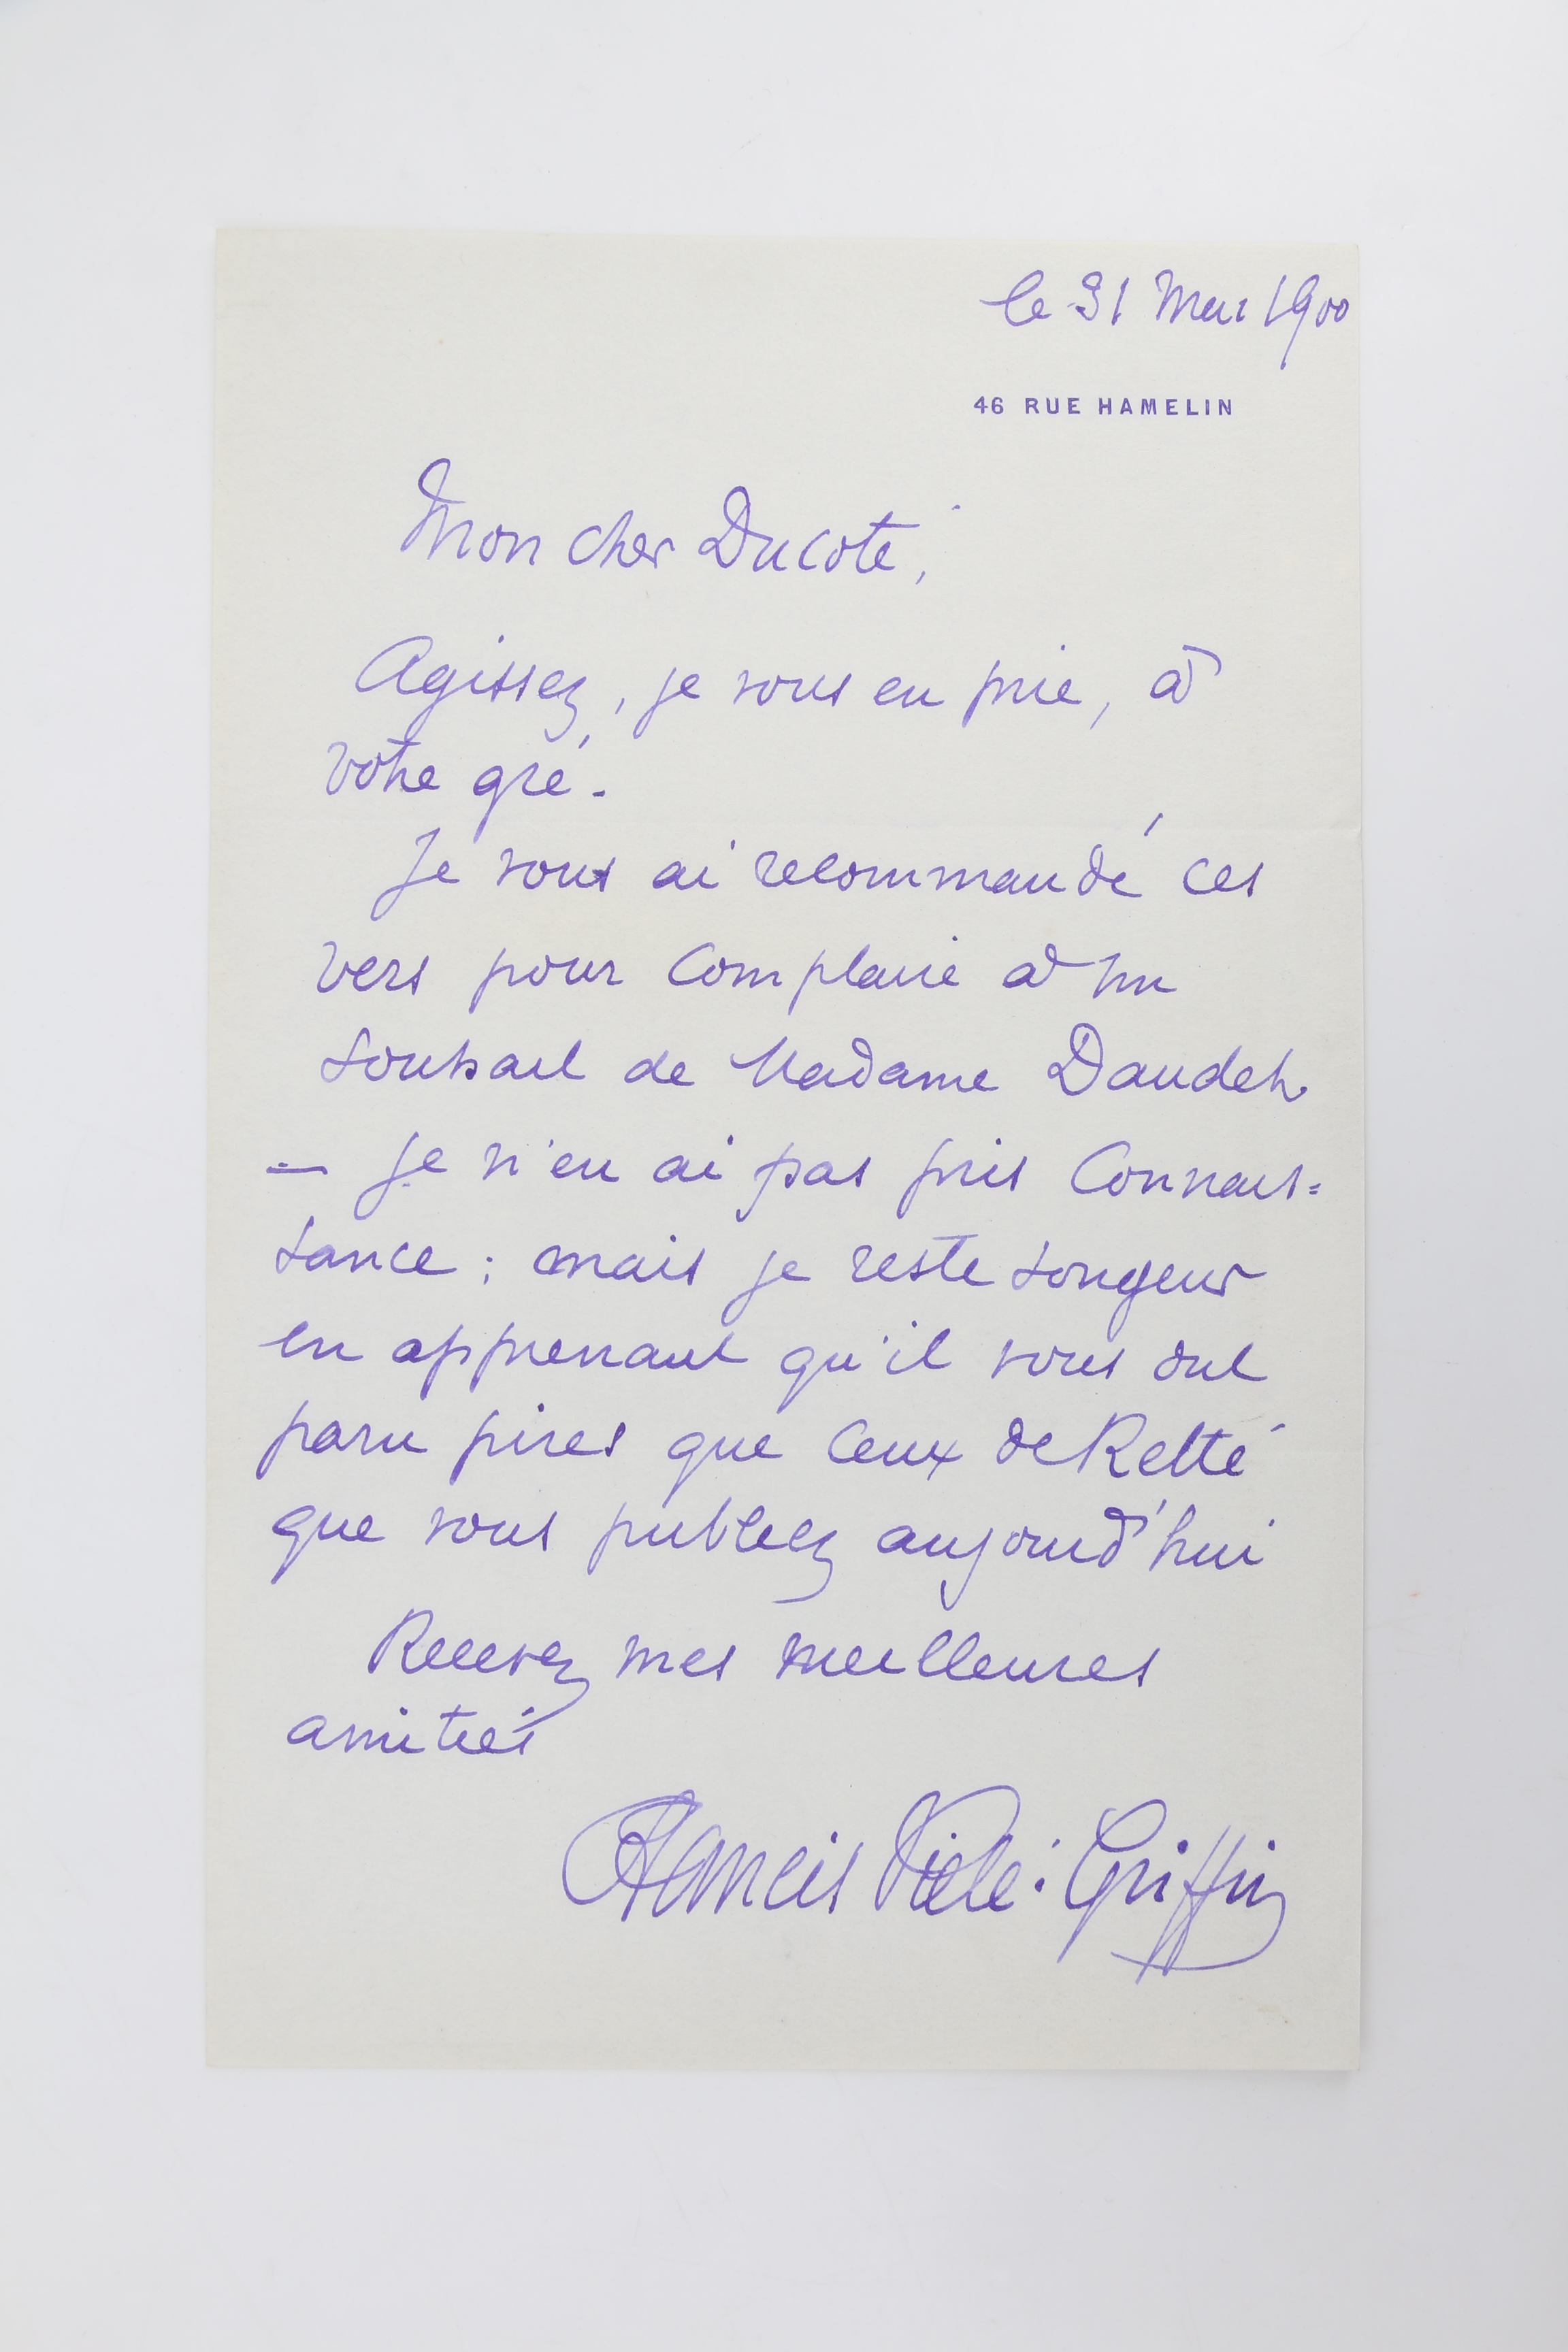 le 31 Mai 1900
46 RUE HAMELIN
Mon cher Ducoté,
Agissez, je vous en prie, à
votre gré.
Je vous ai recommandé ces
vers pour complaire à un
souhait de Madame Daudet
— je n'en ai pas pris connais=
sance ; mais je reste songeur
en apprenant qu'il vous ont
paru pires que ceux de Retté
que vous publiez aujourd'hui
Recevez mes meilleures
amitiés
Francis Vielé-Griffin